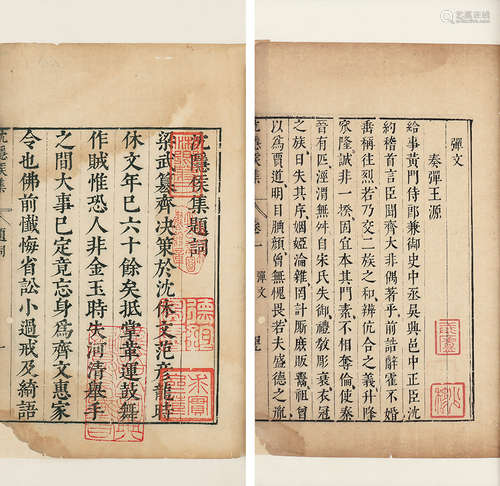 沈隱侯集題詞
梁武篡齊決策於沈休文范彥龍時
休文年已六十餘矣抵掌革運鼓舞
作賊惟恐人非金玉時失河清舉手
之間大事已定竟忘身爲齊文惠家
令也佛前懺悔省訟小過戒及綺語
沈隱侯集
題詞
一
彈文
奏彈王源
給事黃門侍郎兼御史中丞吳興邑中正臣沈
約稽首言臣聞齊大非偶著乎前誥辭霍不婚
垂稱往烈若乃交二族之和辨伉合之義升降
窳隆誠非一揆固宜本其門素不相奪倫使秦
晉有匹涇渭無舛自宋氏失御禮敎彫衰衣冠
之族日失其序姻婭淪雜罔計厮庶販鬻祖曾
以爲賈道明目腆顔曾無愧畏若夫盛德之
沈隱侯集
卷一
彈文